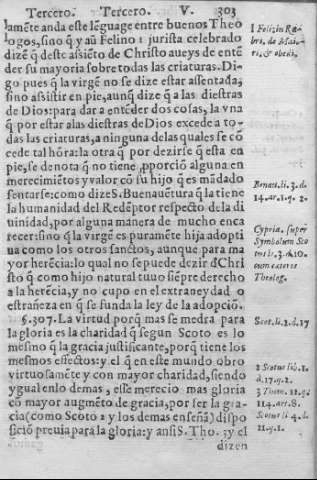 Tercero. Tercero. V. 303
lamēte anda este lēguage entre buenos Theo
logos, sino q̄ y aū Felino 1 jurista celebrado
dizē q̄ deste assiēto de Christo aueys de entē
der su mayoria sobre todas las criaturas. Di-
go pues q̄ la virgē no se dize estar assentada,
sino assistir en pie, aunq̄ dize q̄ a las diestras
de Dios: para dar a entēder dos cosas, la vna
q̄ por estar alas diestras de Dios excede a to-
das las criaturas, a ninguna delas quales se cō
cede tal hōra: la otra q̄ por dezirse q̄ esta en
pie, se denota q̄ no tiene ꝓporciō alguna en
merecimiētos y valor cō su hijo q̄ es mādado
sentarse: como dize S. Buenauētura q̄ la tiene
la humanidad del Redēptor respecto de la di
uinidad, por alguna manera de mucho enca
recer: sino q̄ la virgē es puramēte hija adopti
ua como los otros sanctos, aunque para ma
yor herēcia: lo qual no se puede dezir d̄ Chri
sto q̄ como hijo natural tuuo siēpre derecho
a la herēcia, y no cupo en el extraneydad o
estrañeza en q̄ se funda la ley de la adopciō.
§. 307. La virtud porq̄ mas se medra para
la gloria es la charidad q̄ segun Scoto es lo
mesmo q̄ la gracia justificante, porq̄ tiene los
mesmos effectos: y el q̄ en este mundo obro
virtuosamēte y con mayor charidad, siendo
ygual enlo demas, esse merecio mas gloria
cō mayor augmēto de gracia, por ser la gra-
cia (como Scoto 2 y los demas enseñā) dispo
siciō preuia para la gloria: y ansi S. Tho. 3 y el
dizen
1 Felin in Ru-
bri. de Maio-
ri. & obedi.
Bonau. li. 3. d.
14. ar. 1. q. 2.
Cypria. super
Symbolum
Theolog.
Scot. li. 2. d. 17
2 Scotus lib. 1.
d. 17. q. 2.
3 Thom. 12. q.
114. ar. 8.
Scotus li. 4. d.
21. q. 1.